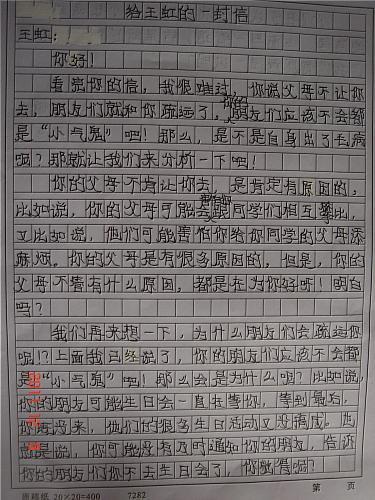 给王虹的一封信
王虹:
你好!
看完你的信,我很难过,你说父母不让你
去,朋友们就和你疏远了,你的朋友们应该不会都
是“小气鬼”吧!那么,是不是自身出了毛病
呢?那就让我们来分析一下吧!
你的父母不肯让你去,是肯定有原因的,
比如说,你的父母可能会跟同学们相互攀比,
又比如说,他们可能害怕你给你同学的父母添
麻烦。你的父母是有很多原因的,但是,你的
父母不管有什么原因,都是在为你好呀!明白
吗?
我们再来想一下,为什么朋友们会疏远你
呢!?上面我已经说了,你的朋友们应该不会都
是“小气鬼”吧!那么会是为什么呢?比如说,
你的朋友可能生日会一直在等你,等到最后,
你再没来,他们的很多生日活动又没搞成。也
就是说,你可能没有及时通知你的朋友,告诉
你的朋友们你不去生日会了,你说有呢?
20×20=400
7282
第 页